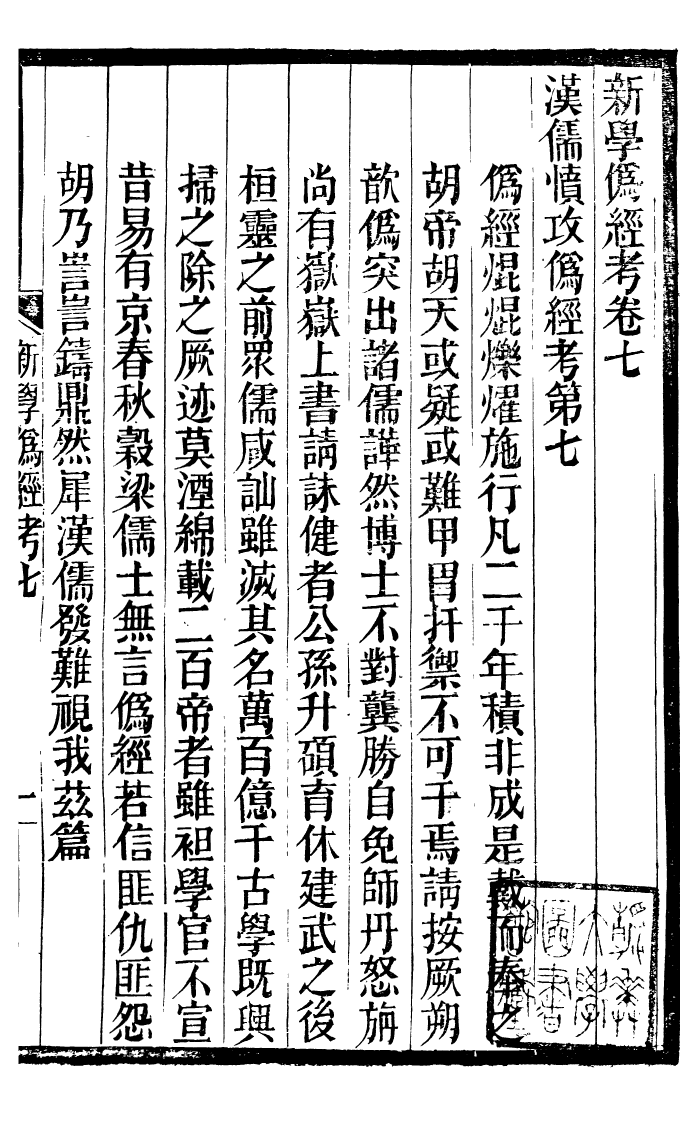 新學僞經考卷七
漢儒憤攻僞經考第七
僞經焜焜爍燿施行凡二千年積非成是戴而奉之
胡帝胡天或疑或難甲胄扞禦不可干焉請按厥朔
歆僞突出諸儒譁然博士不對龔勝自免師丹怒旃
尚有嶽嶽上書請誅健者公孫升碩育休建武之後
桓靈之前眾儒咸訕雖滅其名萬百億千古學既興
掃之除之厥迹莫湮綿載二百帝者雖袒學官不宣
昔易有京春秋穀梁儒士無言僞經若信匪仇匪怨
胡乃訔訔鑄鼎然犀漢儒發難視我茲篇
新學僞經考七
一
燕京大學圖書